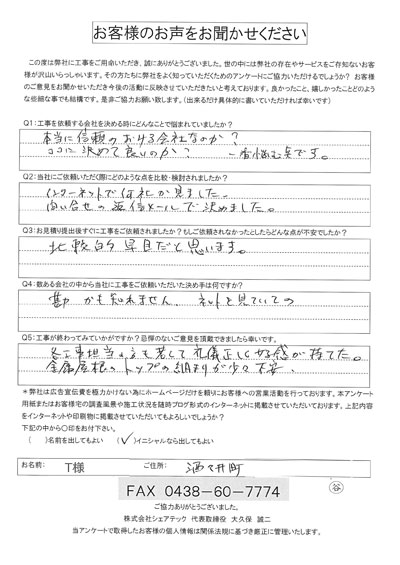 お客様のお声をお聞かせください
この度は弊社に工事をご用命いただき、誠にありがとうございました。世の中には弊社の存在やサービスをご存知ないお客
様が沢山いらっしゃいます。その方たちに弊社をよく知っていただくためのアンケートにご協力いただけるでしょうか? お客様
のご意見をお聞かせいただき今後の活動に反映させていただきたいと考えております。良かったこと、嬉しかったことどのよう
な些細な事でも結構です。是非ご協力お願い致します。(出来るだけ具体的に書いていただければ幸いです)
Q1:工事を依頼する会社を決める時にどんなことで悩まれていましたか?
本当に信頼のおける会社なのか?
ココに決めて良いのか? 一番悩む点です。
Q2:当社にご依頼いただく際にどのような点を比較・検討されましたか?
インターネットで何社か見ました。
問い合せの返信メールで決めました。
Q3:お見積り提出後すぐに工事をご依頼されましたか?もしご依頼されなかったとしたらどんな点が不安でしたか?
比較的早目だと思います。
Q4:数ある会社の中から当社に工事をご依頼いただいた決め手は何ですか?
勘かも知れません。ネットを見ていての
Q5:工事が終わってみていかがですか?忌憚のないご意見を頂戴できましたら幸いです。
各工事担当の方も若くて礼儀正しくやる感が持てた。
金属屋根のトップの納まりが少々不安。
*弊社は広告宣伝費を極力かけない為にホームページだけを頼りにお客様への営業活動を行っております。本アンケート
用紙またはお客様宅の調査風景や施工状況を随時ブログ形式のインターネットに掲載させていただいております。上記内容
をインターネットや印刷物に掲載させていただいてもよろしいでしょうか?
下記の中から○印をお付下さい。
( )名前を出してもよい (✓)イニシャルなら出してもよい
お名前: T様 ご住所: 酒々井町
FAX 0438-60-7774
谷
ご協力ありがとうございました。
株式会社シェアテック 代表取締役 大久保 誠二
当アンケートで取得したお客様の個人情報は関係法規に基づき厳正に管理いたします。